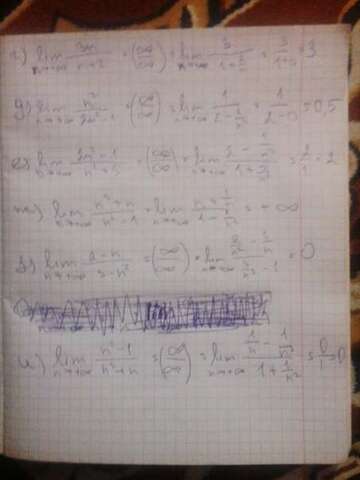 г) lim n→∞ 3n/(n+2) = (∞/∞) = lim n→∞ 3/(1+2/n) = 3/(1+0) = 3
g) lim n→∞ n²/(2n²-1) = (∞/∞) = lim n→∞ 1/(2-1/n²) = 1/(2-0) = 0,5
е) lim n→∞ (2n²-1)/(n²+3) = (∞/∞) = lim n→∞ (2-1/n²)/(1+3/n²) = 2/1 = 2
ж) lim n→∞ (n³+n)/(n²-1) = lim n→∞ (n+1/n)/(1-1/n²) = +∞
з) lim n→∞ (2-n)/(3-n²) = (∞/∞) = lim n→∞ (2/n²-1/n)/(3/n²-1) = 0
и) lim n→∞ (n²-1)/(n³+n) = (∞/∞) = lim n→∞ (1/n-1/n³)/(1+1/n²) = 0/1 = 0